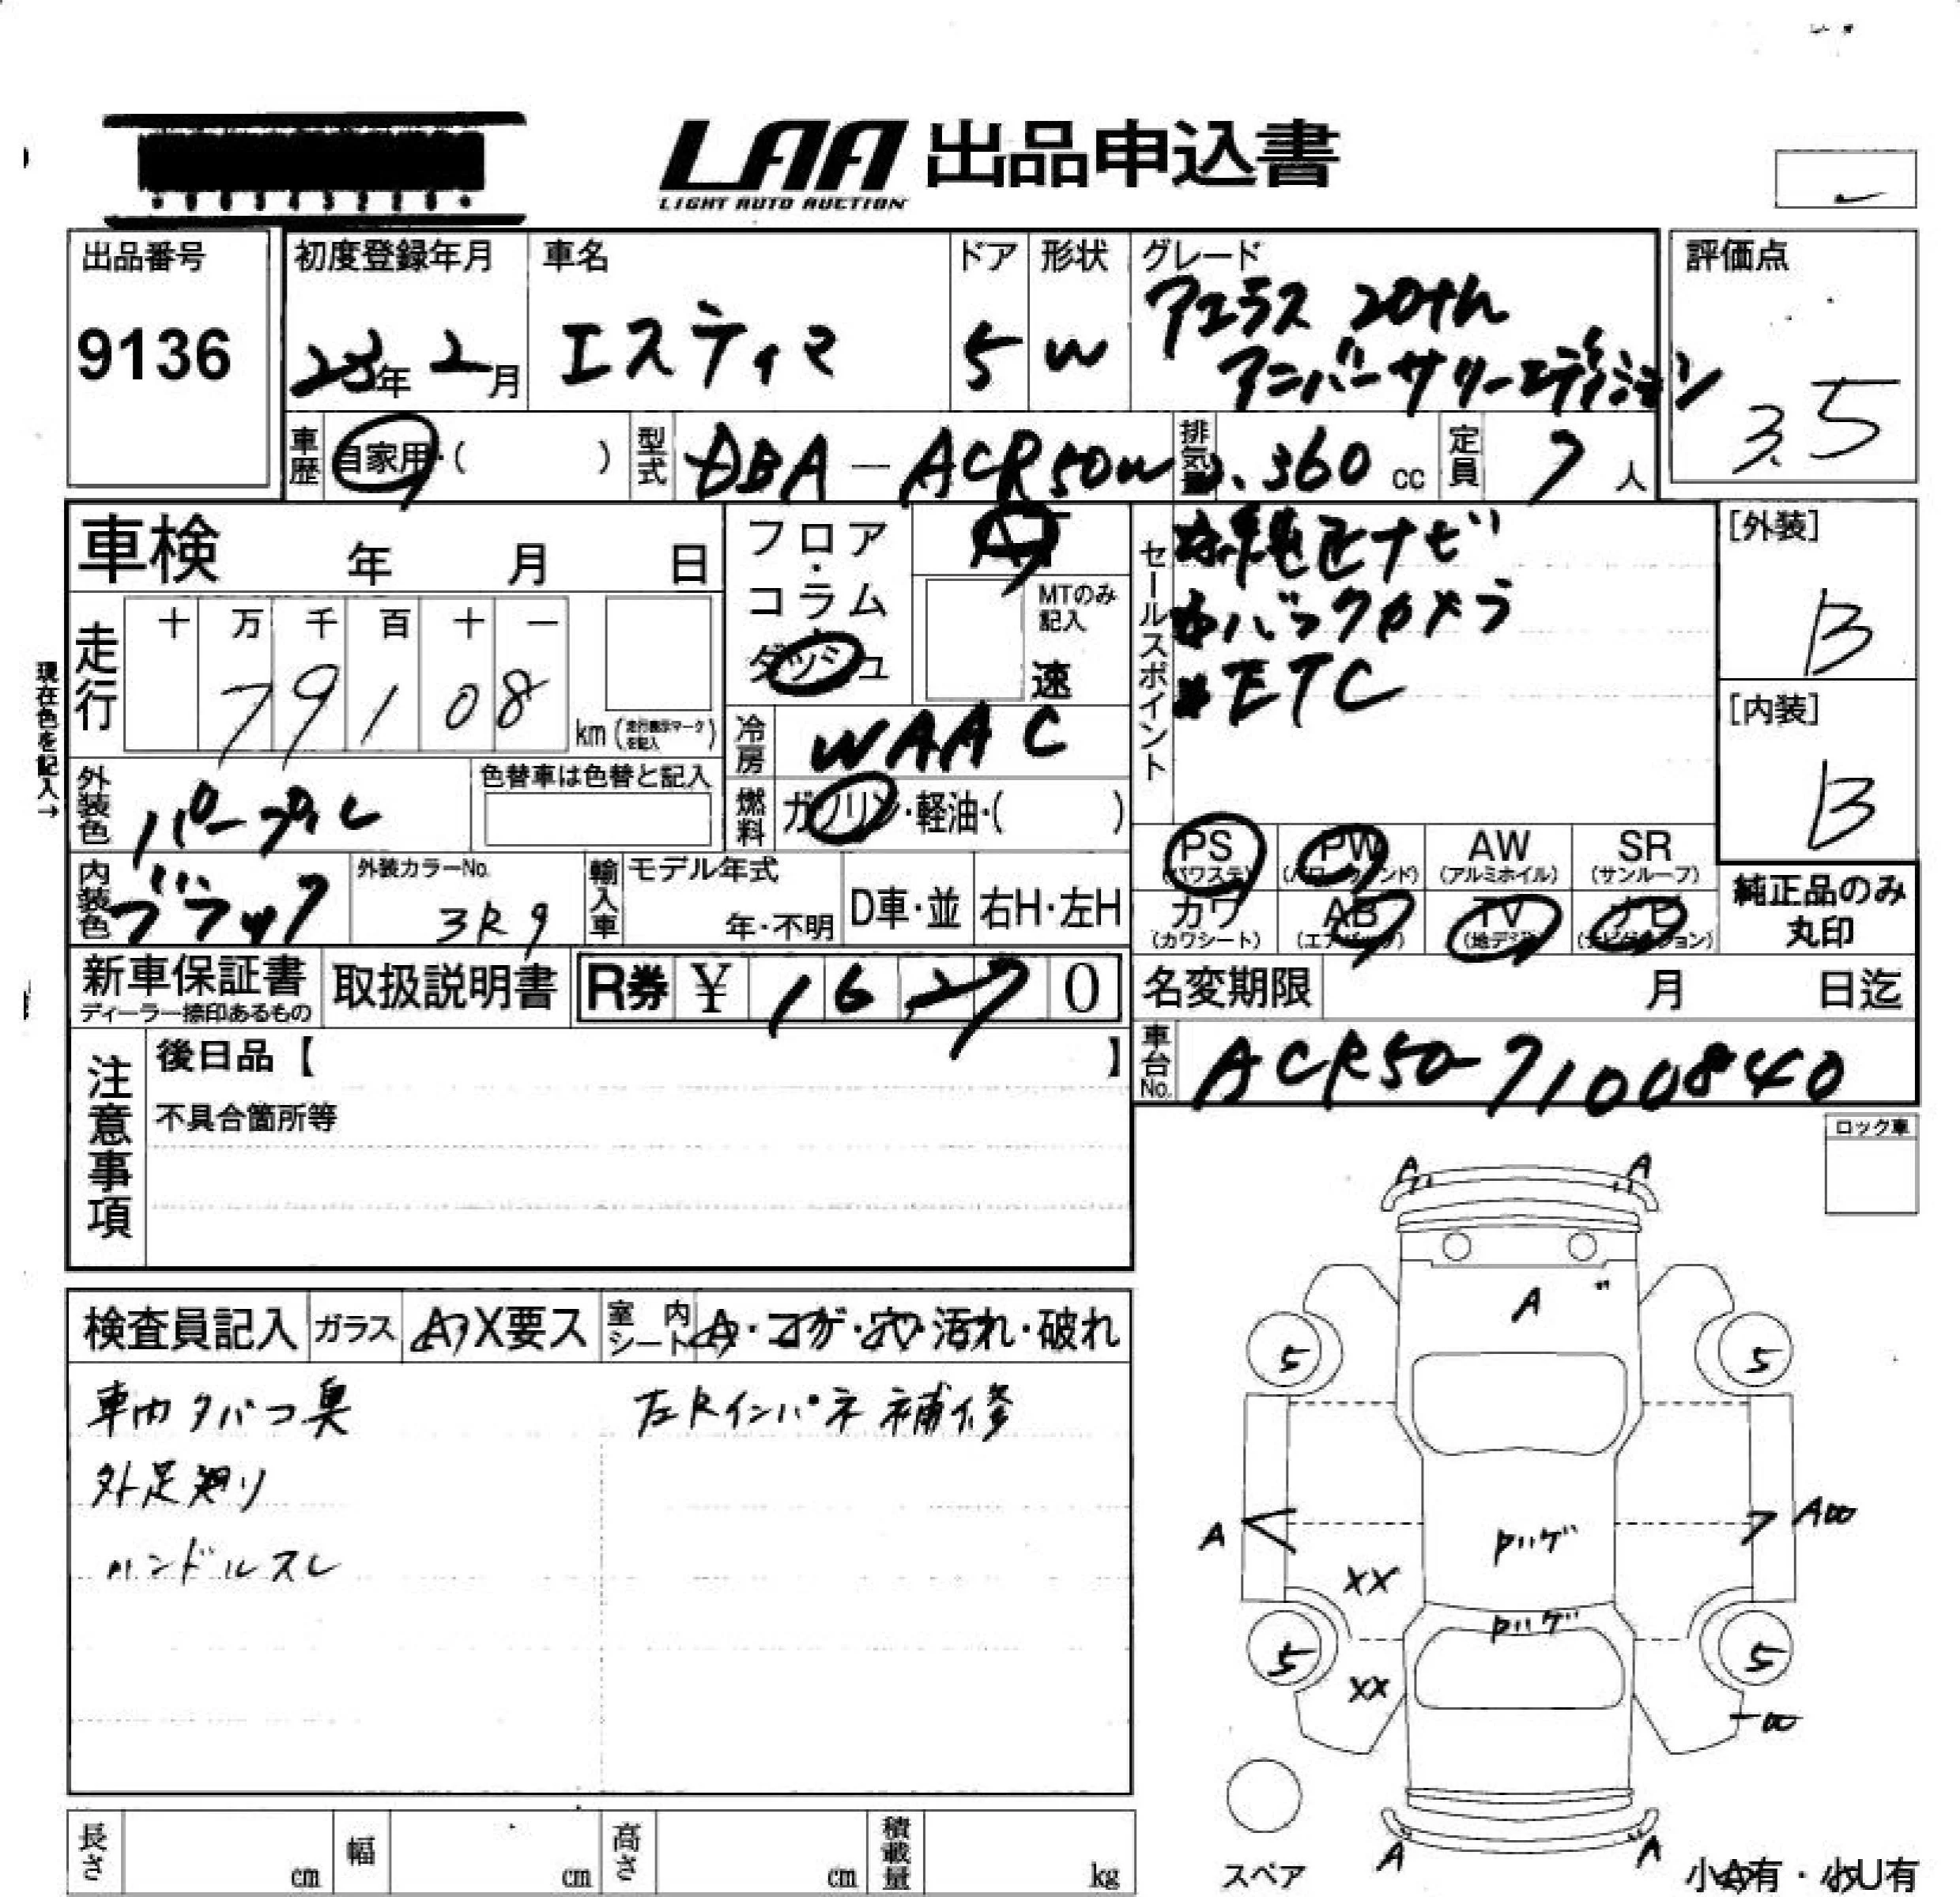 LAA 出品申込書
LIGHT AUTO AUCTION
出品番号
9136
初度登録年月
23年 2月
車名
エスティマ
ドア
5
形状
W
グレード
アエラス 20th
アニバーサリーエディション
評価点
3.5
車歴
自家用・( )
型式
DBA-ACR50W
排気量
.360 cc
定員
7 人
車検 年 月 日
フロア
・
コラム
・
ダッシュ
MTのみ
記入
速
セールスポイント
純正ナビ
バックカメラ
ETC
[外装]
B
[内装]
B
現在色を記入→
走行
十 万 千 百 十 一
7 9 1 0 8
km(走行表示マークを記入)
冷房
WAAC
燃料
ガソリン・軽油・( )
外装色
パープル
色替車は色替と記入
内装色
ブラック
外装カラーNo.
3R9
輸入車
モデル年式
年・不明
D車・並
右H・左H
PS
(パワステ)
PW
(パワーウィンド)
AW
(アルミホイル)
SR
(サンルーフ)
カワ
(カワシート)
AB
(エアバッグ)
TV
(地デジ)
ナビ
(ナビゲーション)
純正品のみ
丸印
新車保証書
ディーラー捺印あるもの
取扱説明書
R券 ¥ 1 6 2 7 0
名変期限 月 日迄
車台No.
ACR50-7100840
注意事項
後日品【 】
不具合箇所等
ロック車
検査員記入
ガラス
A・X要ス
室内シート
A・コガ・穴・汚れ・破れ
車内タバコ臭
左Rインパネ補修
外足廻り
ハンドルスレ
A A
A
5 5
A
XX
ハゲ
ハゲ
5 5
XX
A A
スペア
小A有・小U有
長さ cm
幅 cm
高さ cm
積載量 kg